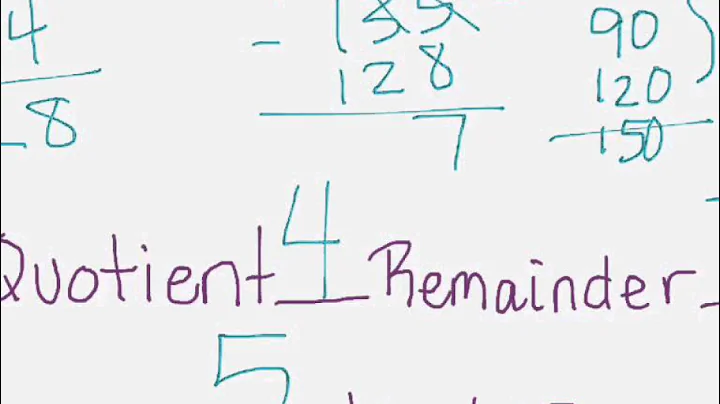 4
8
- 155
90
128
120
7
150
Quotient 4 Remainder
5